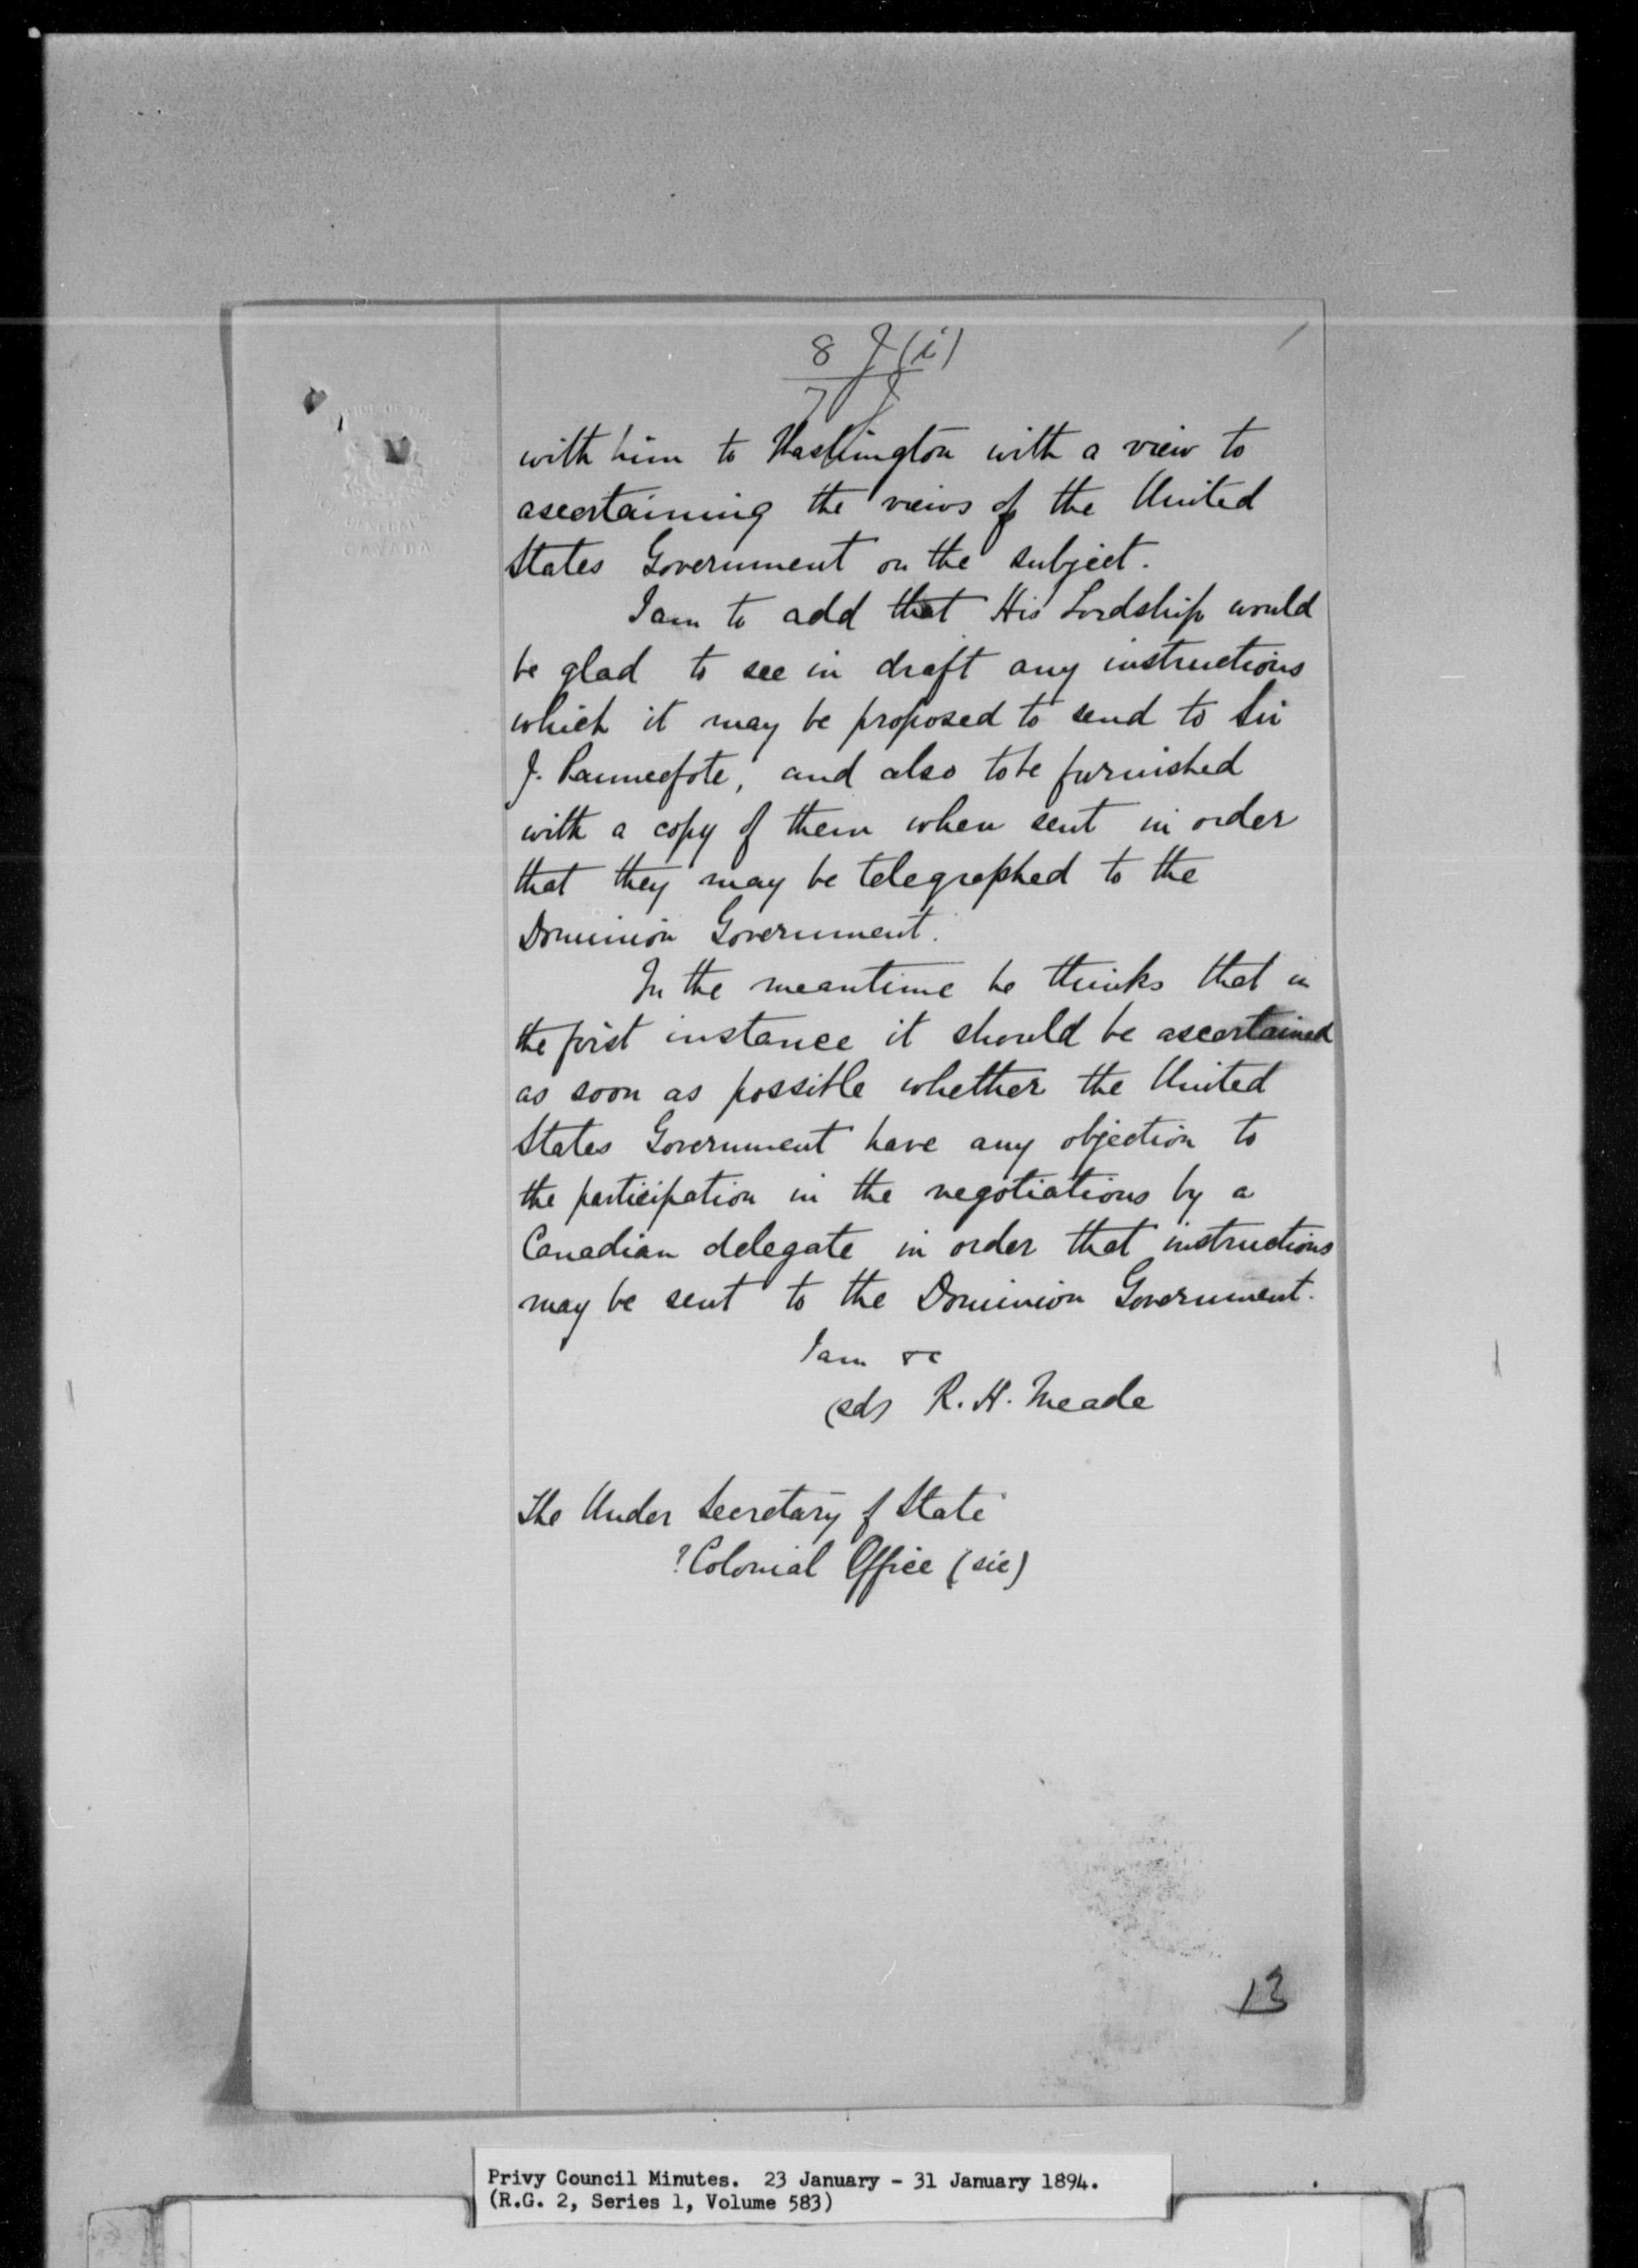 8 J (i)
7 J
with him to Washington with a view to
ascertaining the views of the United
States Government on the subject.
I am to add that His Lordship would
be glad to see in draft any instructions
which it may be proposed to send to Sir
J. Pauncefote, and also to be furnished
with a copy of them when sent in order
that they may be telegraphed to the
Dominion Government.
In the meantime he thinks that in
the first instance it should be ascertained
as soon as possible whether the United
States Government have any objection to
the participation in the negotiations by a
Canadian delegate in order that instructions
may be sent to the Dominion Government.
I am &c
(sd) R. H. Meade
The Under Secretary of State
? Colonial Office (sic)
CANADA
13
Privy Council Minutes. 23 January - 31 January 1894.
(R.G. 2, Series 1, Volume 583)